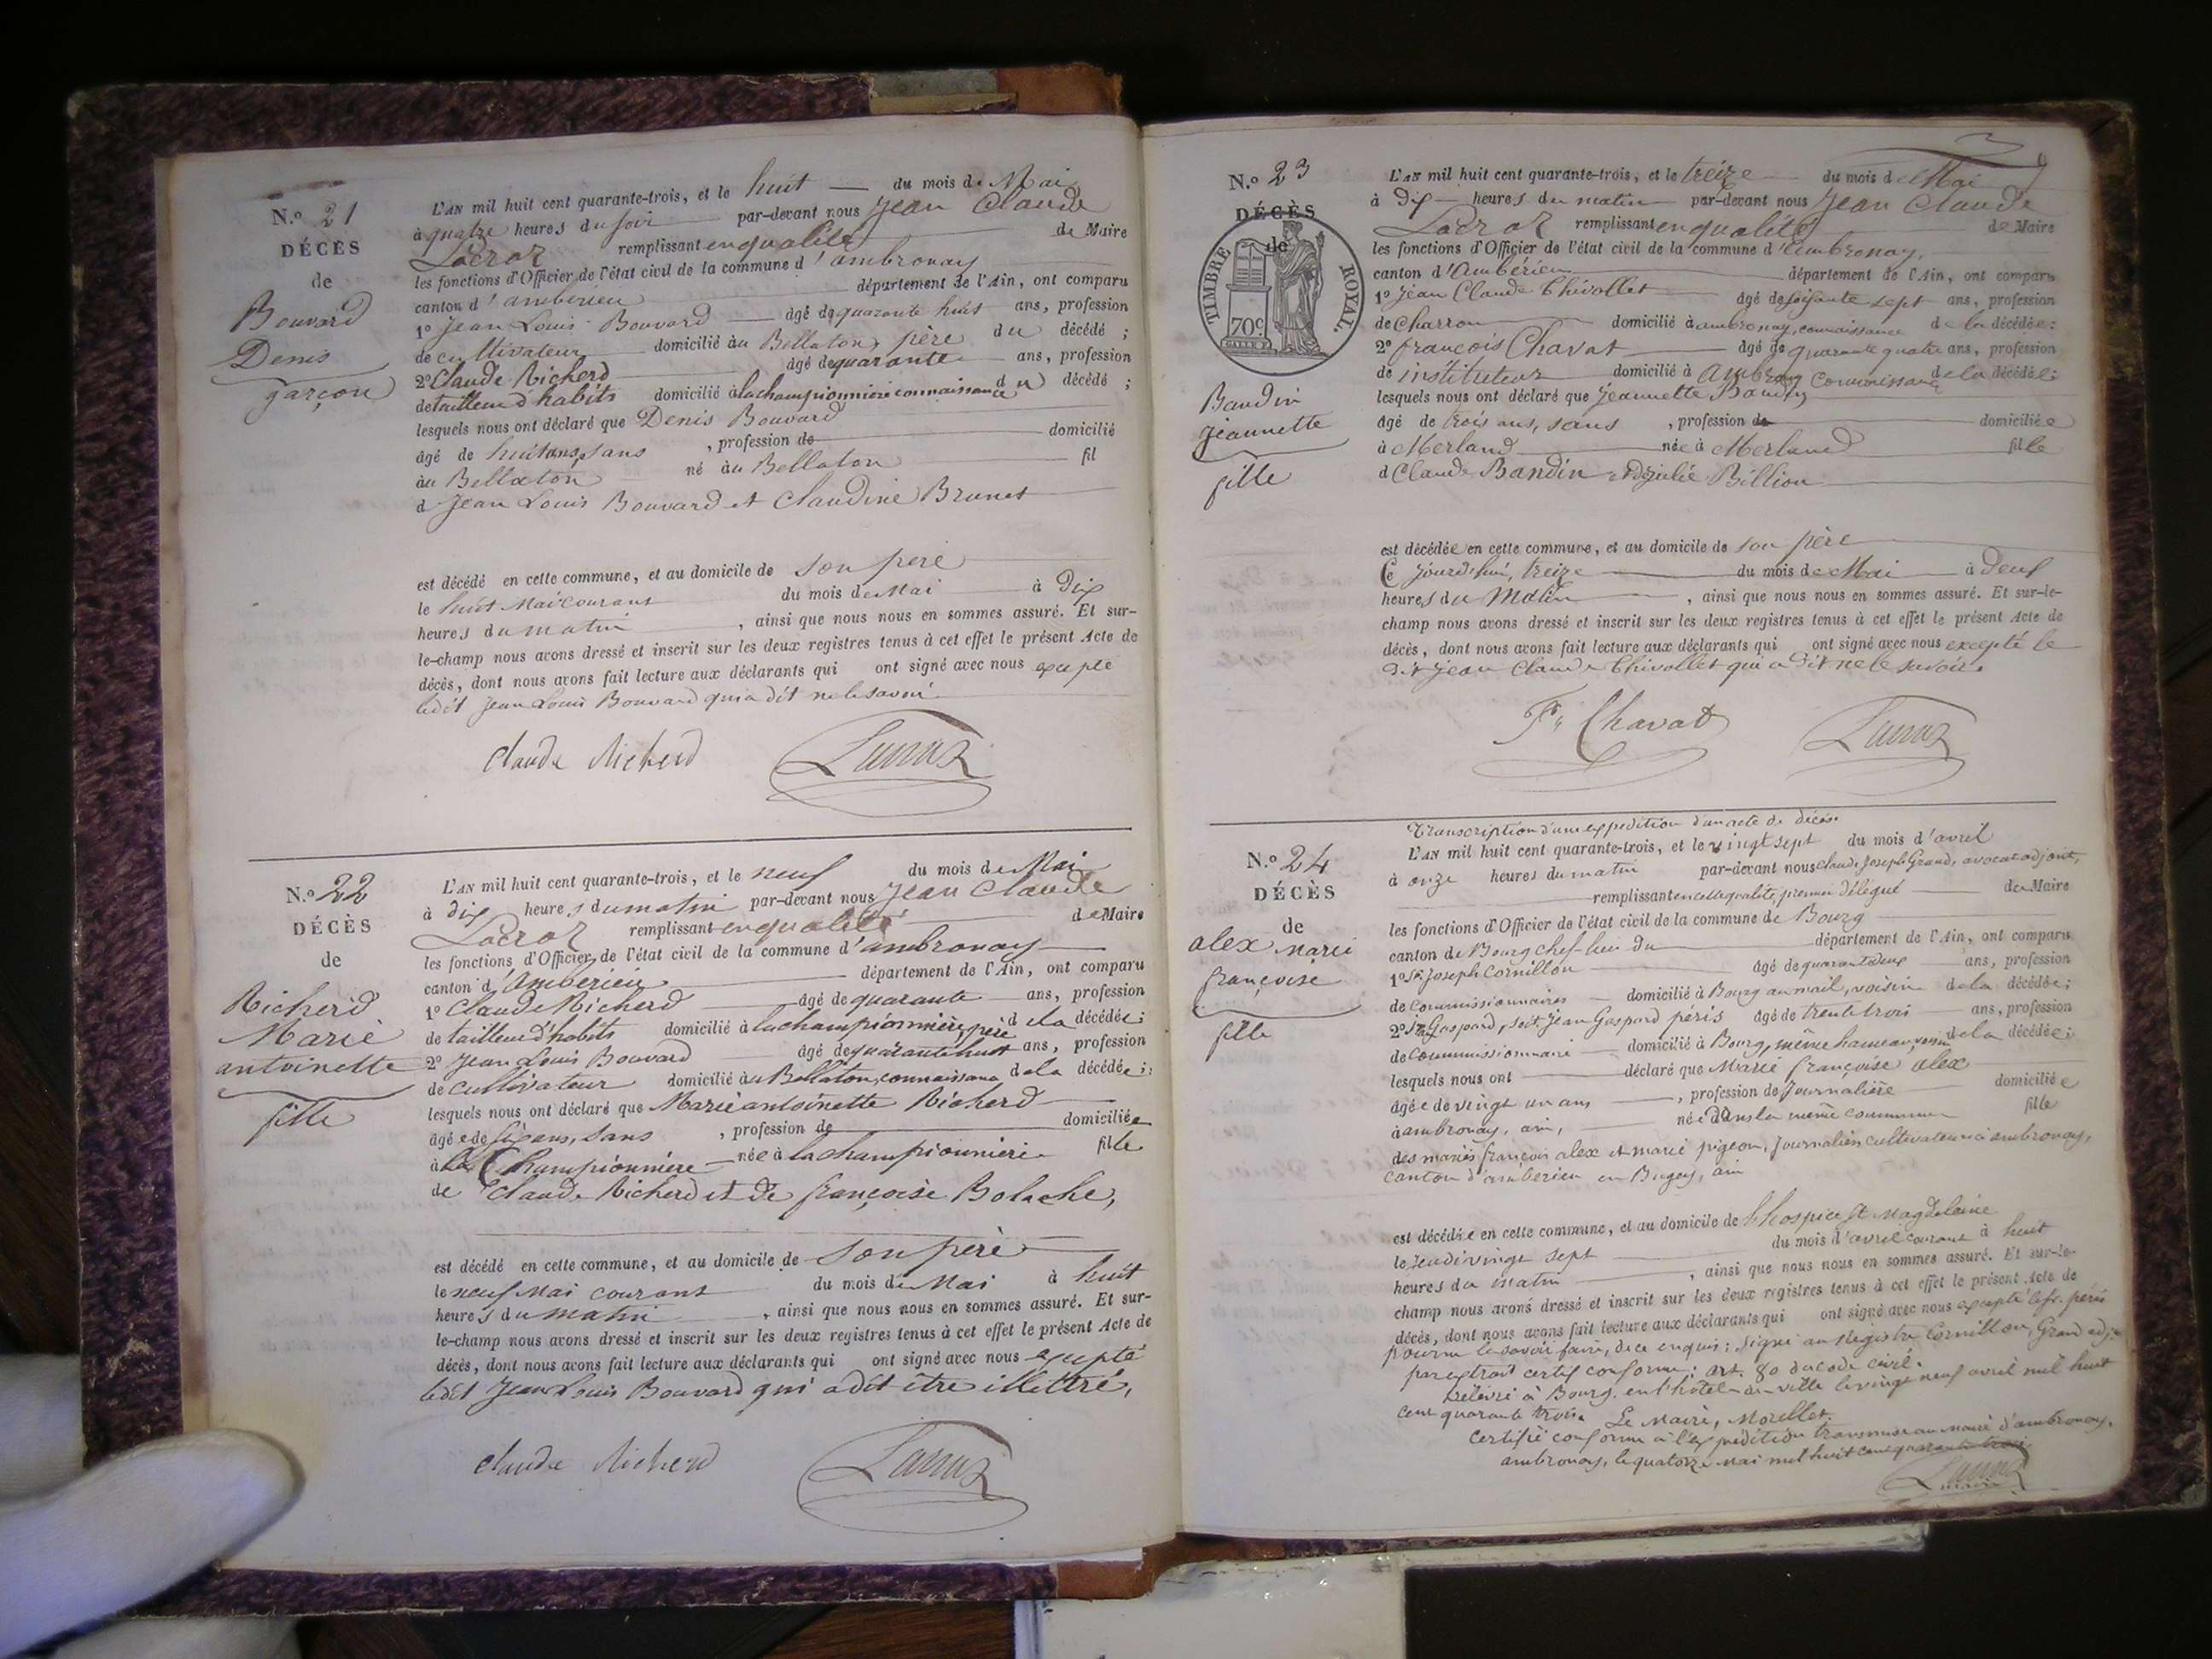 N.o 21
DÉCÈS
de
Bouvard
Denis
garçon
L'AN mil huit cent quarante-trois, et le huit du mois de Mai
à quatre heures du soir par-devant nous Jean Claude
remplissant en qualité de Maire
les fonctions d'Officier de l'état civil de la commune d'ambronay
canton d'ambérieu département de l'Ain, ont comparu
1o Jean Louis Bouvard âgé de quarante huit ans, profession
de cultivateur domicilié au Bellaton, père du décédé ;
2o Claude Richerd âgé de quarante ans, profession
de tailleur d'habits domicilié à la championnière connaissance du décédé ;
lesquels nous ont déclaré que Denis Bouvard
âgé de huit ans, sans , profession de domicilié
au Bellaton né au Bellaton fil
d Jean Louis Bouvard et Claudine Brunet
est décédé en cette commune, et au domicile de son père
le huit Mai courant du mois de Mai à dix
heures du matin , ainsi que nous nous en sommes assuré. Et sur-
le-champ nous avons dressé et inscrit sur les deux registres tenus à cet effet le présent Acte de
décès, dont nous avons fait lecture aux déclarants qui ont signé avec nous excepté
ledit Jean Louis Bouvard qui a dit ne le savoir
Claude Richerd
N.o 22
DÉCÈS
de
Richerd
Marie
antoinette
fille
L'AN mil huit cent quarante-trois, et le neuf du mois de Mai
à dix heures du matin par-devant nous Jean Claude
remplissant en qualité de Maire
les fonctions d'Officier de l'état civil de la commune d'ambronay
canton d'Ambérieu département de l'Ain, ont comparu
1o Claude Richerd âgé de quarante ans, profession
de tailleur d'habits domicilié à la championnière, père de la décédée ;
2o Jean Louis Bouvard âgé de quarante huit ans, profession
de cultivateur domicilié au Bellaton, connaissance de la décédée ;
lesquels nous ont déclaré que Marie antoinette Richerd
âgée de six ans, sans , profession de domiciliée
à la Championnière née à la championnière fille
de Claude Richerd et de françoise Bolache,
est décédé en cette commune, et au domicile de son père
le neuf Mai courant du mois de Mai à huit
heures du matin , ainsi que nous nous en sommes assuré. Et sur-
le-champ nous avons dressé et inscrit sur les deux registres tenus à cet effet le présent Acte de
décès, dont nous avons fait lecture aux déclarants qui ont signé avec nous excepté
ledit Jean Louis Bouvard qui a dit être illettré,
Claude Richerd
N.o 23
DÉCÈS
de
TIMBRE ROYAL.
70c
Baudin
Jeannette
fille
L'AN mil huit cent quarante-trois, et le treize du mois de Mai
à dix heures du matin par-devant nous Jean Claude
remplissant en qualité de Maire
les fonctions d'Officier de l'état civil de la commune d'Ambronay,
canton d'Ambérieu département de l'Ain, ont comparu
1o Jean Claude Thivollet âgé de soixante sept ans, profession
de Charron domicilié à ambronay, connaissance de la décédée ;
2o françois Chavat âgé de quarante quatre ans, profession
de instituteur domicilié à Ambronay connaissance de la décédée ;
lesquels nous ont déclaré que Jeannette Baudin
âgé de trois ans, sans , profession de domiciliée
à Merland née à Merland fille
d Claude Baudin et de julie Billion
est décédée en cette commune, et au domicile de son père
Ce jourd'hui, treize du mois de Mai à deux
heures du Matin , ainsi que nous nous en sommes assuré. Et sur-le-
champ nous avons dressé et inscrit sur les deux registres tenus à cet effet le présent Acte de
décès, dont nous avons fait lecture aux déclarants qui ont signé avec nous excepté le
dit Jean Claude Thivollet qui a dit ne le savoir.
Fs Chavat
Transcription d'une expédition d'un acte de décès.
N.o 24
DÉCÈS
de
alex Marie
françoise
fille
L'AN mil huit cent quarante-trois, et le vingt sept du mois d'avril
à onze heures du matin par-devant nous claude Joseph Grand, avocat adjoint,
remplissant en cette qualité, premier délégué du Maire
les fonctions d'Officier de l'état civil de la commune de Bourg
canton de Bourg chef-lieu du département de l'Ain, ont comparu
1o Sr. Joseph Cornillon âgé de quarant deux ans, profession
de commissionnaires domicilié à Bourg au mail, voisin de la décédée ;
2o Sr Gaspard, soit Jean Gaspard peris âgé de trente trois ans, profession
de commissionnaire domicilié à Bourg, même hameau, voisin de la décédée ;
lesquels nous ont déclaré que Marie françoise alex
âgée de vingt un ans , profession de Journalière domiciliée
à ambronay, ain, née dans la même commune fille
des mariés françois alex et marie pigeon, Journaliers cultivateurs à ambronay,
canton d'amberieu en Bugey, ain
est décédée en cette commune, et au domicile de l'hospice St Magdelaine
le jeudi vingt sept du mois d'avril courant à huit
heures du matin , ainsi que nous nous en sommes assuré. Et sur-le-
champ nous avons dressé et inscrit sur les deux registres tenus à cet effet le présent Acte de
décès, dont nous avons fait lecture aux déclarants qui ont signé avec nous excepté le sr. peris
pour ne le savoir faire, de ce enquis ; signé au Registre Cornillon, Grand adjt.
par extrait certif conforme : art. 80 du code civil.
Délivré à Bourg, en l'hôtel-de-ville le vingt neuf avril mil huit
cent quarante trois. Le Maire, Morellet.
Certifié conforme à l'expédition transmise au Maire d'ambronay.
ambronay, le quatorze Mai mil huit cent quarante trois
maire